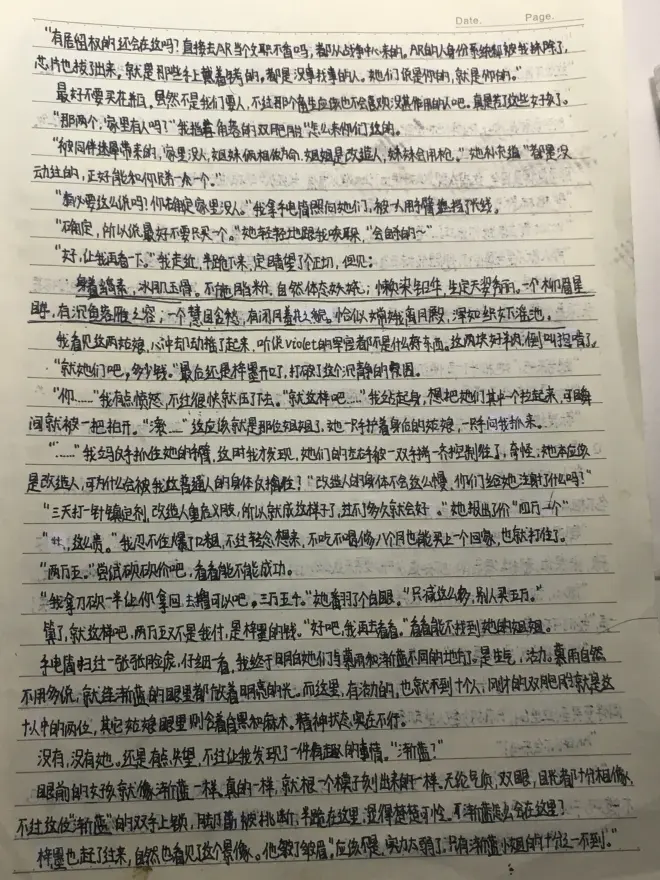 Date. Page.
"有居留权的还会在这吗？直接去AR当个文职不香吗，都从战争中心来的。AR的人身份系统都被我抹除了，
芯片也拔了出来，就是那些手上戴着铐的，都是没事找事的人。她们说是你的，就是你的。"
最好不要买在前后，虽然不是我们要人，不过那个畜生应该也不会喜欢没其作用的人吧。真是苦了这些女孩了。
"那两个，家里有人吗？"我指着角落的双胞胎"怎么来你们这的。
"被同伴迷晕带来的，家里没人，姐妹俩相依为命，姐姐是改造人，妹妹会用枪。"她补充道"都是没
动过的，正好能和你说弄一个。"
"有必要这么说吗？你确定家里没人。"我拿手电筒照向她们，被一人用手臂遮挡了光线。
"确定，所以说最好不要只买一个。"她轻轻地跟我耳语，"会自杀的~"
"好，让我再看一下。"我走近，半跪下来，定睛望了个正切，但见：
身着缟素，冰肌玉骨。不施脂粉，自然体态妖娆；懒染铅华，生定天姿秀丽。一个柳眉星
眸，有沉鱼落雁之容；一个慧目含愁，有闭月羞花之貌。恰似嫦娥离月殿，浑如织女下瑶池。
我看见这两姑娘，心中却动摇了起来，听说violet的军官都不是什么好东西。这两块好羊肉，倒叫狗啃了。
"就她们吧，多少钱。"最后还是梓墨开口了，打破了这个沉静的氛围。
"你……"我有点愕然，不过很快就压了下去。"就这样吧……"我站起身，想把她们其中一个拉起来，可瞬
间就被一把拍开。"滚……"这应该就是那位姐姐了，她一只手护着身后的姑娘，一只手向我抓来。
"……"我立马右手抓住她的手臂，这时我才发现，她们的左右手被一双手铐一齐控制住了，奇怪；她本应该
是改造人，可为什么会被我这普通人的身体反擒住？"改造人的身体不会这么慢，你们给她注射了什么吗？"
"三天打一针镇定剂，改造人重启义肢，所以就成这样子了，过不了多久就会好。"她报出了价"四万一个"
"，这么贵。"我忍不住爆了口粗，不过转念想来，不吃不喝做八个月也能买上一个回家，也就打住了。
"两万五。"尝试砍砍价吧，看看能不能成功。
"我拿刀砍一半让你拿回去撸可以吧，三万五千。"她翻了个白眼。"只减这么多，别人买五万。"
算了，就这样吧，两万五又不是我付，是梓墨的钱。"好吧，我再去看看。"看看能不能找到她的姐姐。
手电筒扫过一张张脸庞，仔细一看，我终于明白她们与暮雨和渐蓝不同的地方了。是生气，活力。暮雨自然
不用多说，就连渐蓝的眼里都放着明亮的光。而这里，有活力的，也就不到十个人，刚才的双胞胎就是这
十人中的两位，其它姑娘眼里则含着自卑和麻木。精神状态实在不行。
没有，没有她。还是有点失望，不过让我发现了一件有趣的事情。"渐蓝？"
眼前的女孩就像渐蓝一样，真的一样，就跟一个模子刻出来的一样。无论气质，双眼，目光都十分相像，
不过这位"渐蓝"的双手上锁，脚筋被挑断，半跪在这里，显得楚楚可怜。可渐蓝怎么会在这里？
梓墨也赶了过来，自然也看见了这个景像。他皱了皱眉，"应该不是，实力太弱了，只有渐蓝小姐的十分之一不到。"